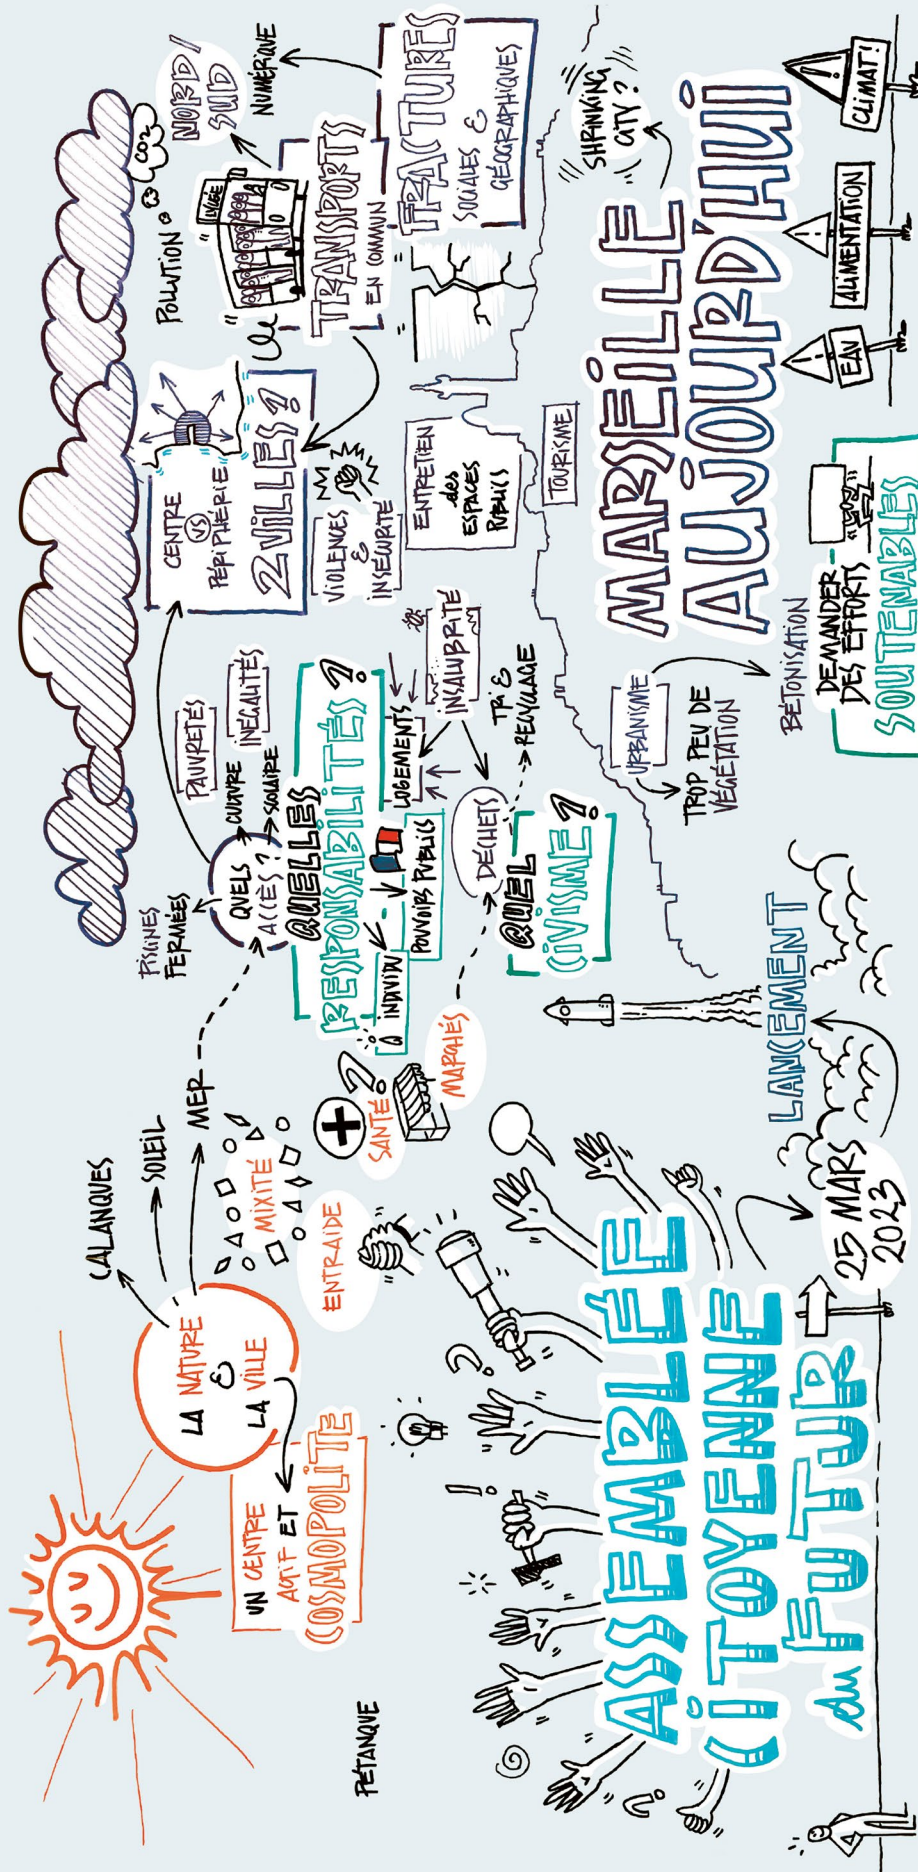 ASSEMBLÉE
CITOYENNE
du FUTUR
25 MARS
2023
LANCEMENT
PÉTANQUE
UN CENTRE
ACTIF ET
COSMOPOLITE
LA NATURE
&
LA VILLE
CALANQUES
SOLEIL
MER
MIXITÉ
ENTRAIDE
SANTÉ ?
MARCHÉS
PISCINES
FERMÉES
QUELS
ACCÈS ?
CULTURE
SCOLAIRE
PAUVRETÉS
INÉGALITÉS
QUELLES
RESPONSABILITÉS ?
INDIVIDU
POUVOIRS PUBLICS
LOGEMENTS
INSALUBRITÉ
DÉCHETS
TRI &
RECYCLAGE
QUEL
CIVISME ?
CENTRE
VS
PÉRIPHÉRIE
2 VILLES ?
VIOLENCES
&
INSÉCURITÉ
ENTRETIEN
des
ESPACES
PUBLICS
TOURISME
POLLUTION
CO2
LYCÉE
NORD /
SUD
TRANSPORTS
EN COMMUN
NUMÉRIQUE
FRACTURES
SOCIALES &
GÉOGRAPHIQUES
SHRINKING
CITY ?
MARSEILLE
AUJOURD'HUI
URBANISME
TROP PEU DE
VÉGÉTATION
BÉTONISATION
DEMANDER
DES EFFORTS
SOUTENABLES
EAU
ALIMENTATION
CLIMAT !